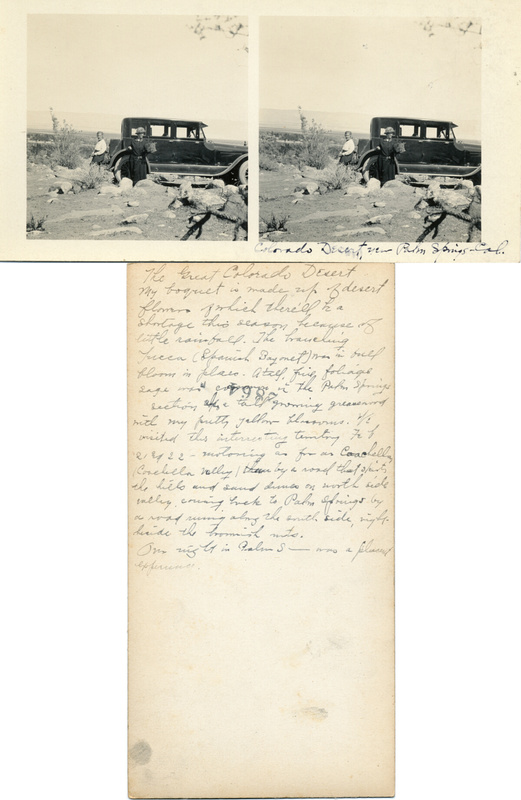 Colorado Desert, near Palm Springs - Cal.
The Great Colorado Desert
My boquet is made up of desert
flowers of which there'll be a
shortage this season because of
little rainfall. The branching
Yucca (Spanish Bayonet) was in full
bloom in places. A tall, foliage
sage was common in the Palm Springs
section also a tall growing greasewood
7864
with my pretty yellow blossoms. We
visited this interesting territory Feb
21 & 22 - motoring as far as Coachella
(Coachella Valley) by a road that
the hills and sand dunes on north side
valley, coming back to Palm Springs by
a road along the south side, right
beside the mts.
Our night in Palm S — was a
experience.